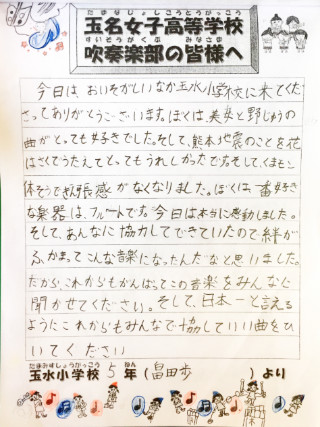 たまなじょしこうとうがっこう
玉名女子高等学校
すいそうがくぶ みなさま
吹奏楽部の皆様へ
今日は、おいそがしいなか玉水小学校に来てくだ
さってありがとうございます。ぼくは、美女と野じゅうの
曲がとっても好きでした。そして、熊本地震のことを花
はさくでうたえてとってもうれしかったです。そしてくまモン
体そうできん張感がなくなりました。ぼくは、一番好き
な楽器は、フルートです。今日は本当に感動しました。
そして、あんなに協力してできていたので絆が
ふかまってこんな音楽になったんだなと思いました。
だから、これからもがんばってこの音楽をみんなに
聞かせてください。そして、日本一と言える
ようにこれからもみんなで協していい曲をひ
いてください
たまみずしょうがっこう ねん
玉水小学校 5年(畠田歩)より